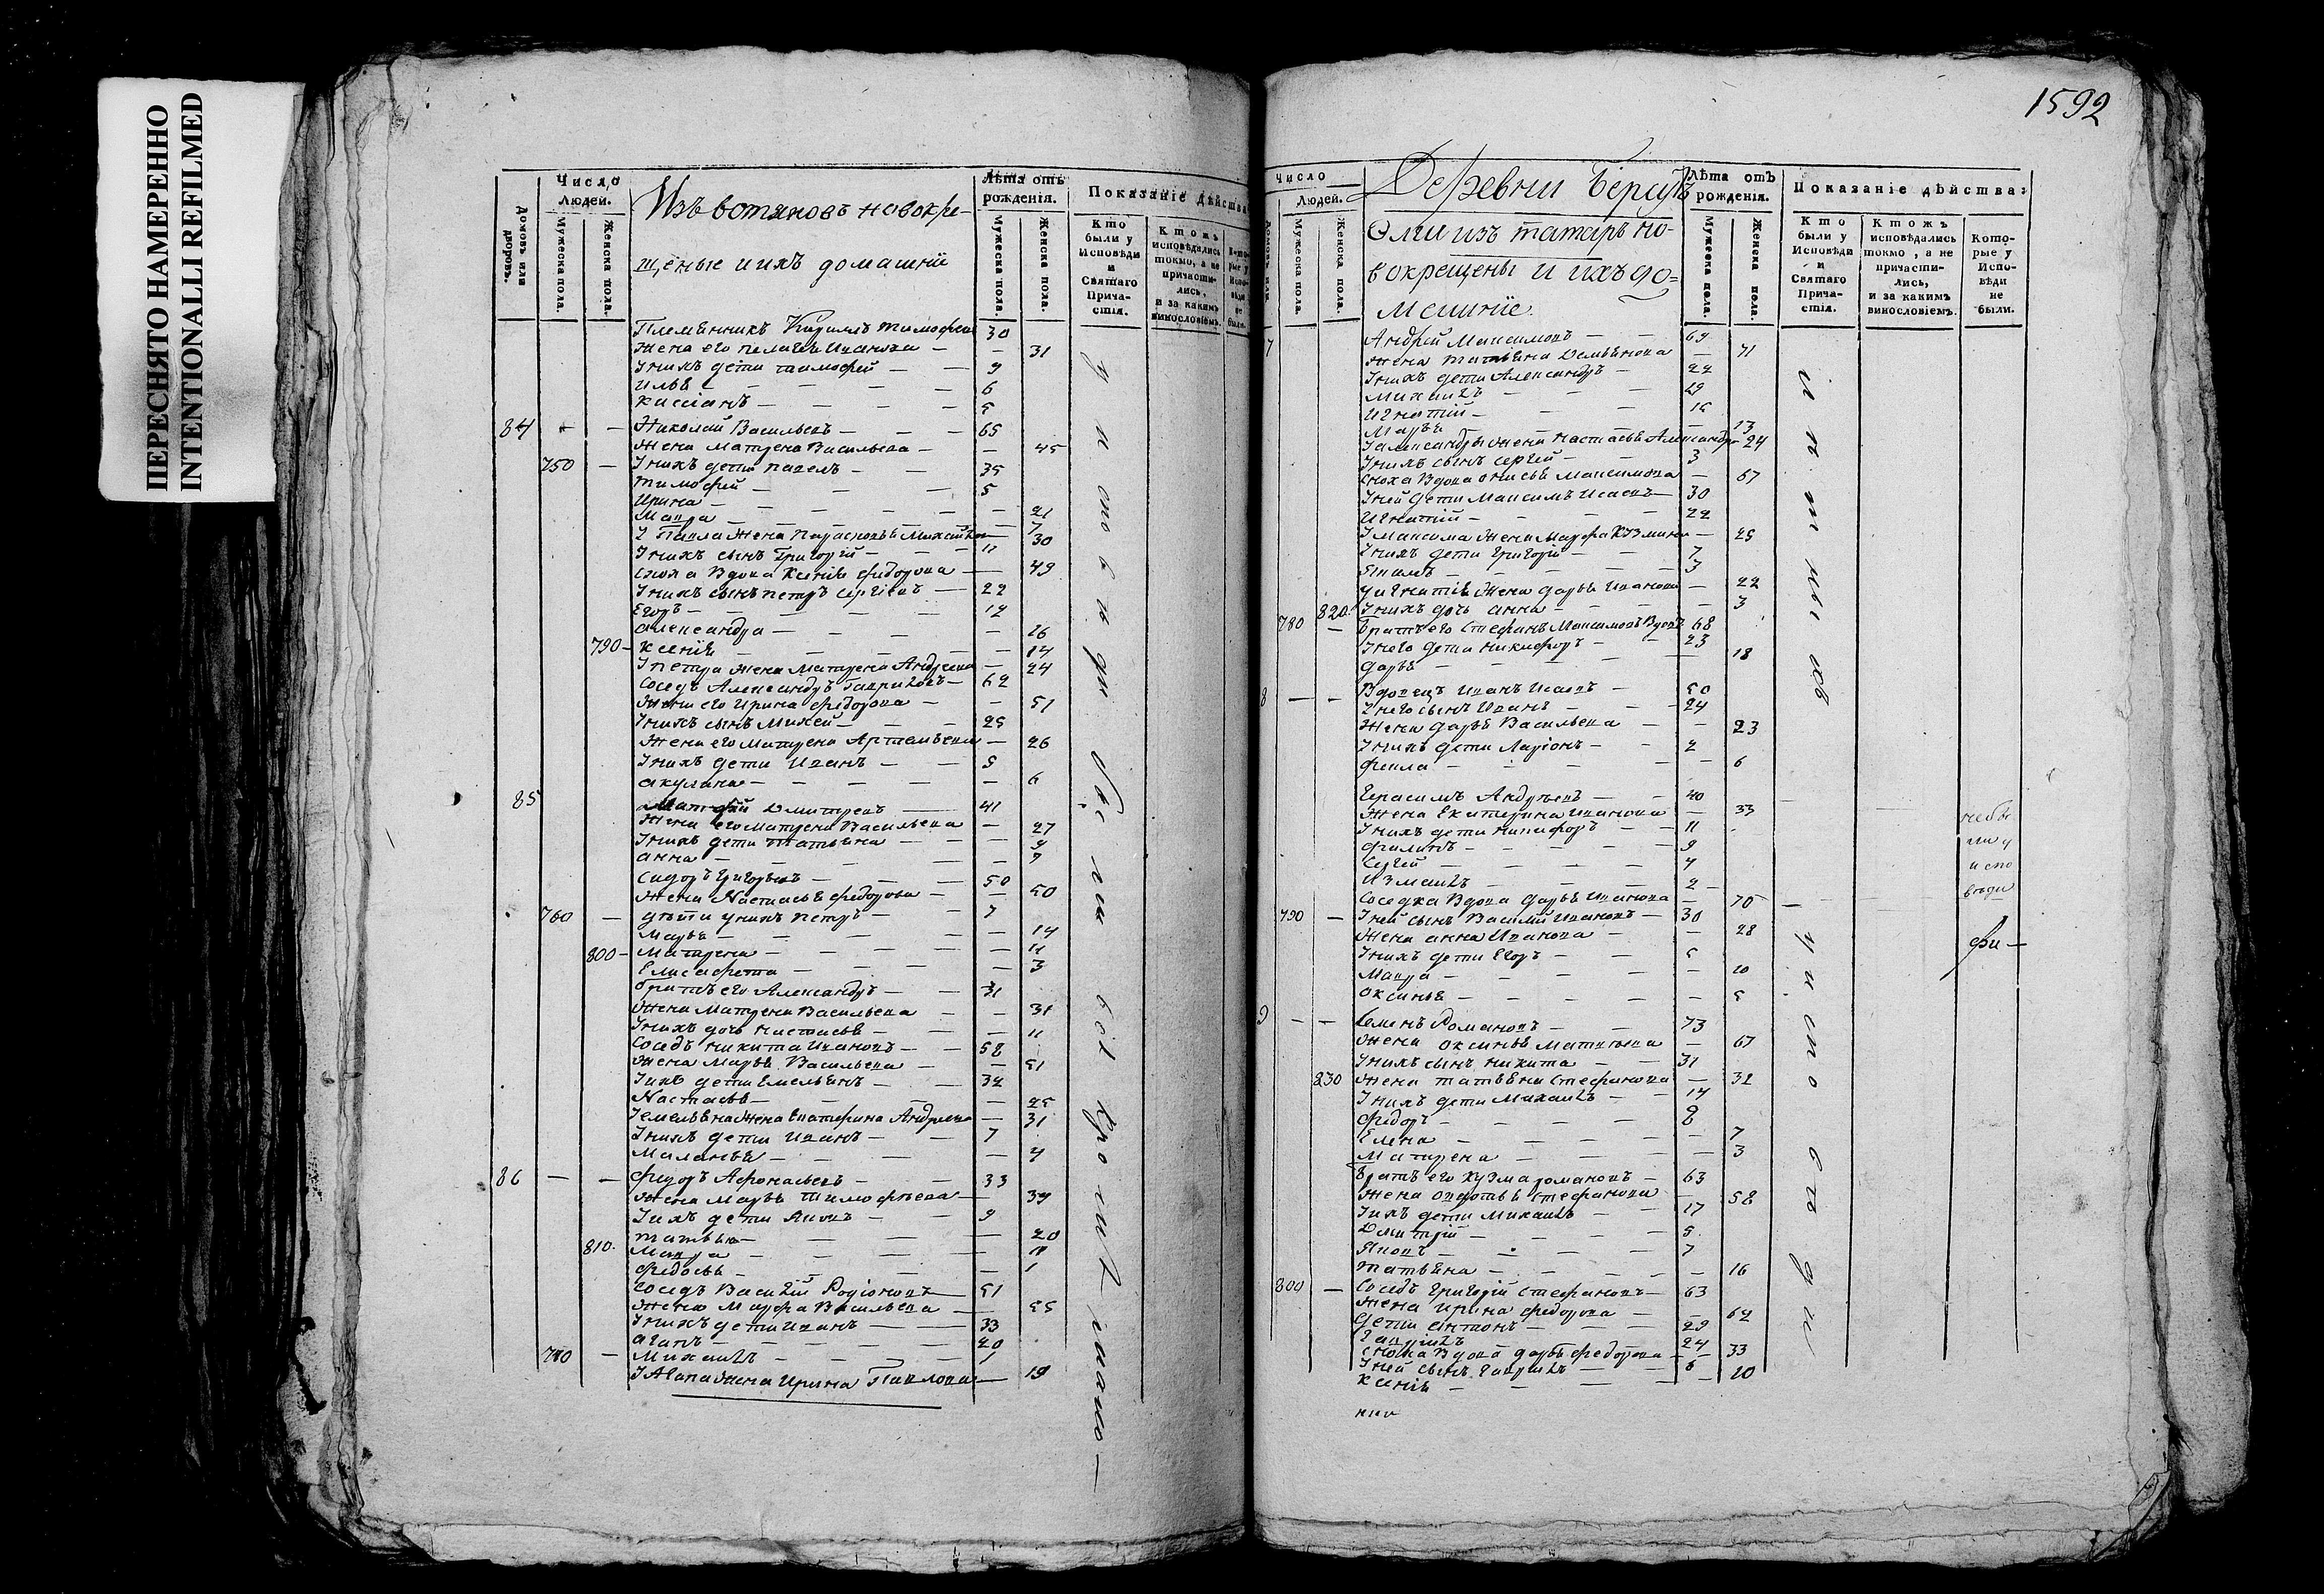 ПЕРЕСНЯТО НАМЕРЕННО
INTENTIONALLI REFILMED
Домовъ или дворовъ.
Число Людей.
Мужеска пола.
Женска пола.
Изъ вотяковъ новокре-
щеные и ихъ домашнїе
Лѣта отъ рожденїя.
Мужеска пола.
Женска пола.
Показанїе дѣйства
Кто были у Исповѣди и Святаго Причастїя.
Ктожъ исповѣдались токмо, а не причастились, и за какимъ винословїемъ.
Племянникъ Кирилъ Тимофеи 30
Жена его Пелагея Иванова — — 31
Унихъ дети Тимофей — — 9
Илья — — — 6
Касиянъ — — — 5
84 — — Николай Васильевъ — — 65
Жена Матрена Васильева — — 45
750 — Унихъ дети Павелъ — — 35
Тимофей — — — 5
Ирина — — — 21
Мавра — — — 7
У Павла Жена Парасковья Михайло — 30
Унихъ сынъ Григорей — — 11
сноха Вдова Ксения Федорова — 49
Унихъ сынъ Петръ Сергеевъ — 22
Егоръ — — — 12
Александра — — — 16
790 — Ксения — — — 14
У Петра жена Матрена Андреева — 24
Соседъ Александръ Гавриловъ — 62
Жена его Ирина Федорова — — 51
Унихъ сынъ Михей — — 25
Жена его Матрена Артемьева — 26
Унихъ дети Иванъ — — 5
Акулина — — — 6
85 Матфей Дмитревъ — 41
Жена его Матрена Васильева — 27
Унихъ дети Татьяна — — 9
Анна — — — 7
Сидоръ Григорьевъ — — 50
Жена Настасья Федорова — — 50
760 — дѣти унихъ Петръ — — 7
Марья — — — 14
800 — Матрена — — — 11
Елисафета — — — 3
братъ его Александръ — — 31
Жена Матрена Васильева — — 31
Унихъ дочь Настасья — — 11
Соседъ Никита Ивановъ — — 58
Жена Марья Васильева — — 51
Уихъ дети Емельянъ — — 32
Настасья — — — 25
Уемельяна Жена Екатерина Андреева — 31
Унихъ дети Иванъ — — 7
Маланья — — — 4
86 — — Федоръ Афонасьевъ — — 33
Жена Марья Тимофѣева — — 34
Уихъ дети Яковъ — — 9
Татьяна — — — 20
810. Мавра — — — 11
Федосья — — — 1
Соседъ Василїй Родїоновъ — 51
Жена Марфа Васильева — — 55
Унихъ дети Иванъ — — 33
Агапъ — — — 20
770 — Михаилъ — — — 1
У Агапа Жена Ирина Павлова — 19
у исповѣди были
1592
Число Людей.
Мужеска пола.
Женска пола.
Деревни
изъ татаръ но-
вокрещены и ихъ до=
машнїе.
Лѣта отъ рожденїя.
Мужеска пола.
Женска пола.
Показанїе дѣйства:
Кто были у Исповѣди и Святаго Причастїя.
Ктожъ исповѣдались токмо, а не причастились, и за какимъ винословїемъ.
Которые у Исповѣди не были.
7 Андрей Максимовъ — 69
Жена Татьяна Демьянова — 71
Унихъ дети Александръ — 22
Михаилъ — — 19
Игнатїй — — — 15
Марья — — — 13
У Александры жена Настасья Александро 24
Унихъ сынъ Сергей — — 3
сноха Вдова Анисья Максимова — 57
Уней дети Максимъ Исаевъ — 30
Игнатїй — — — 22
У Максима Жена Марфа Кузмина — 25
Унихъ дети Григорїй — — 7
— — 3
У Игнатїя Жена Дарья Иванова — 22
820. Унихъ дочь Анна — — 3
780 — Братъ его Стефанъ Максимовъ Вдовъ 68
Унего дети Никифоръ — — 23
Дарья — — — 18
8 — — Вдовецъ Иванъ Исаевъ — 50
Унего сынъ Иванъ — — 24
Жена Дарья Васильева — — 23
Унихъ дети Ларїонъ — — 2
Фекла — — — 6
Герасимъ Андреевъ — — 40
Жена Екатерина Иванова — 33
Унихъ дети Никифоръ — — 11
Филипъ — — — 9
Сергей — — — 4
Измаилъ — — — 2
Соседка Вдова Дарья Иванова — 70
790 — Уней сынъ Василїй Ивановъ — 30
Жена Анна Иванова — — 28
Унихъ дети Егоръ — — 5
Мавра — — — 10
Оксинья — — — 5
не бы
ли у
испо
вѣди
9 — — Семенъ Романовъ — — 73
Жена Оксинья Матвѣева — 67
Унихъ сынъ Никита — — 31
830 Жена Татьяна Стефанова — 32
Унихъ дети Михаилъ — — 14
Федоръ — — — 8
Елена — — — 7
Матрена — — — 3
Братъ его Кузма Романовъ — 63
Жена Авдотья Стефанова — 58
Уихъ дети Михаилъ — — 17
Дмитрїй — — — 5
Яковъ — — — 7
Татьяна — — — 16
800 — Соседъ Григорїй Стефановъ — 63
Жена Ирина Федорова — — 62
Дети Антонъ — — 29
Гаврилъ 24
Сноха Вдова Дарья Федорова — 33
Уней сынъ Гаврилъ — — 6
Ксения — — — 10
у исповѣди